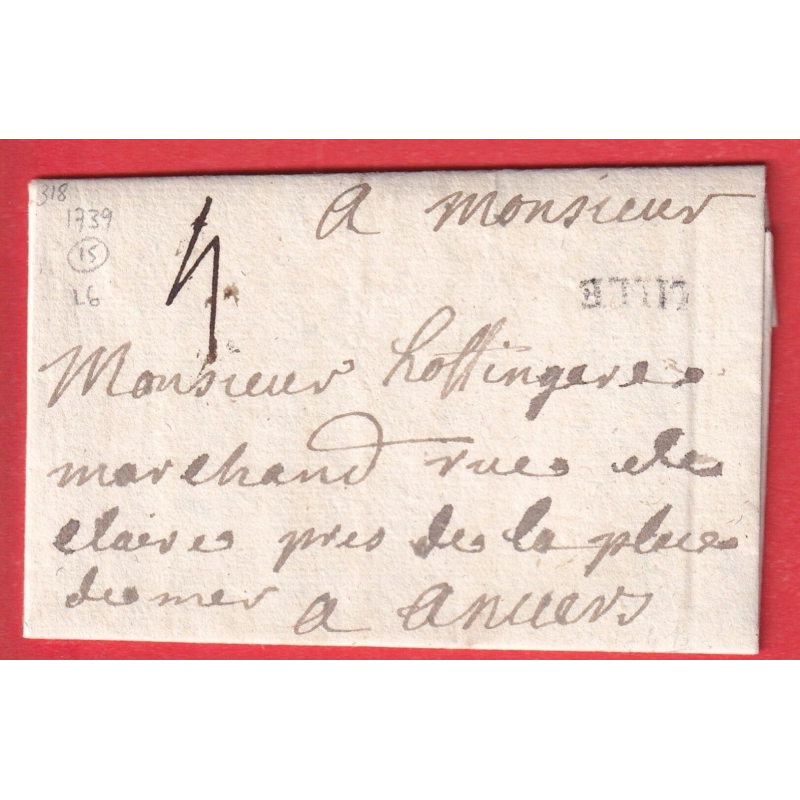 318
1739
15
L6
4
a monsieur
LILLE
Monsieur hoffingere
marchand rue de
claire pres de la place
de mer a anuers